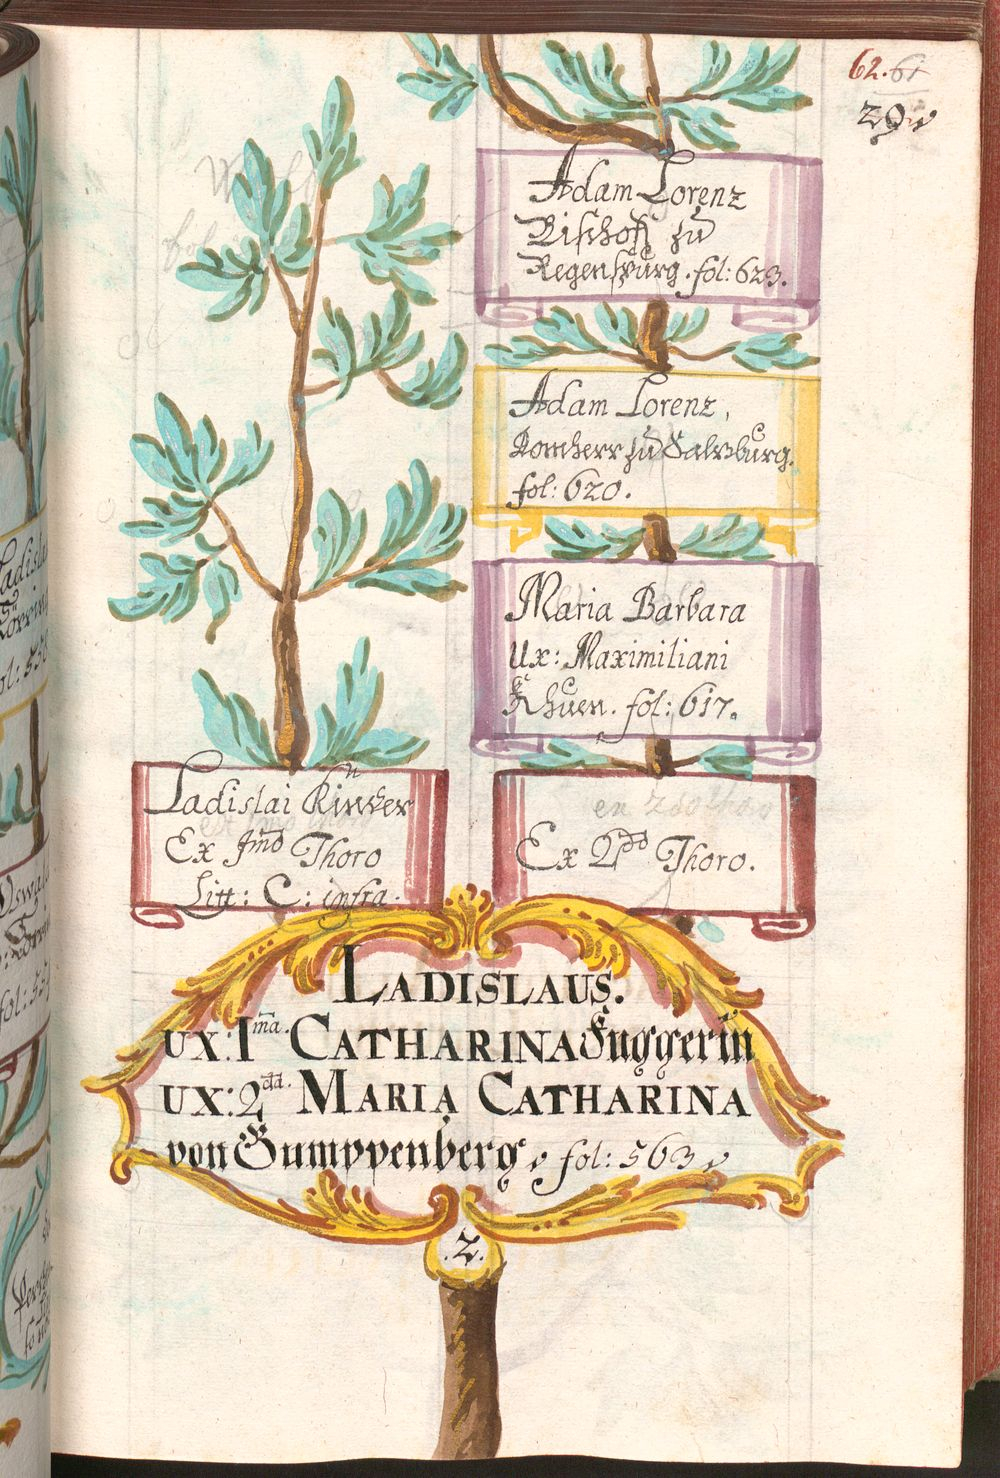 62. 61
29
Adam Lorenz
Bischoff zu
Regenspurg. fol: 623.
Adam Lorenz,
Domherr zu Salzburg.
fol: 620.
Maria Barbara
Ux: Maximiliani
Khuen. fol: 617.
Ladislai Kinder
Ex Imo Thoro
Litt: C: infra.
Ex 2do Thoro.
LADISLAUS.
UX: Ima. CATHARINA Fuggerin
UX: 2da. MARIA CATHARINA
von Gumppenberg, fol: 563
.2.